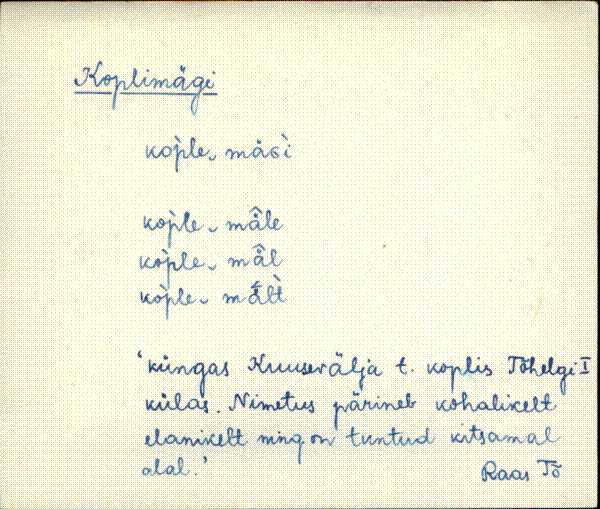 Koplimägi
kop̀le ᴗ mäɢì
kop̀le ᴗ mä̂le
kop̀le ᴗ mä̂l
kop̀le ᴗ mä̂lt̀
'küngas Kuuseválja t. koplis Tõhelgi I
külas. Nimetus pärineb kohalikelt
elanikelt ning on tuntud kitsamal
alal.'
Raas Tõ